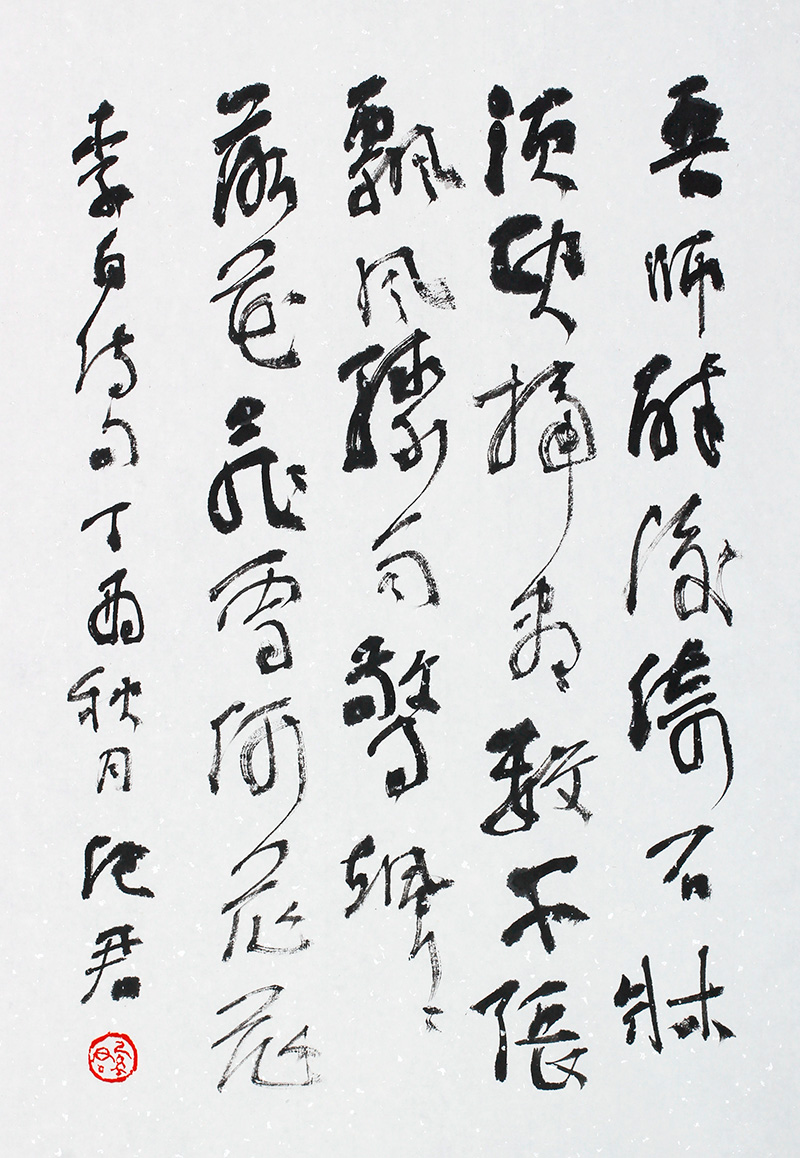 吾師醉後倚石牀
須臾掃盡數千張
飄風驟雨驚颯々
落花飛雪何茫茫
李白詩句丁酉秋月君